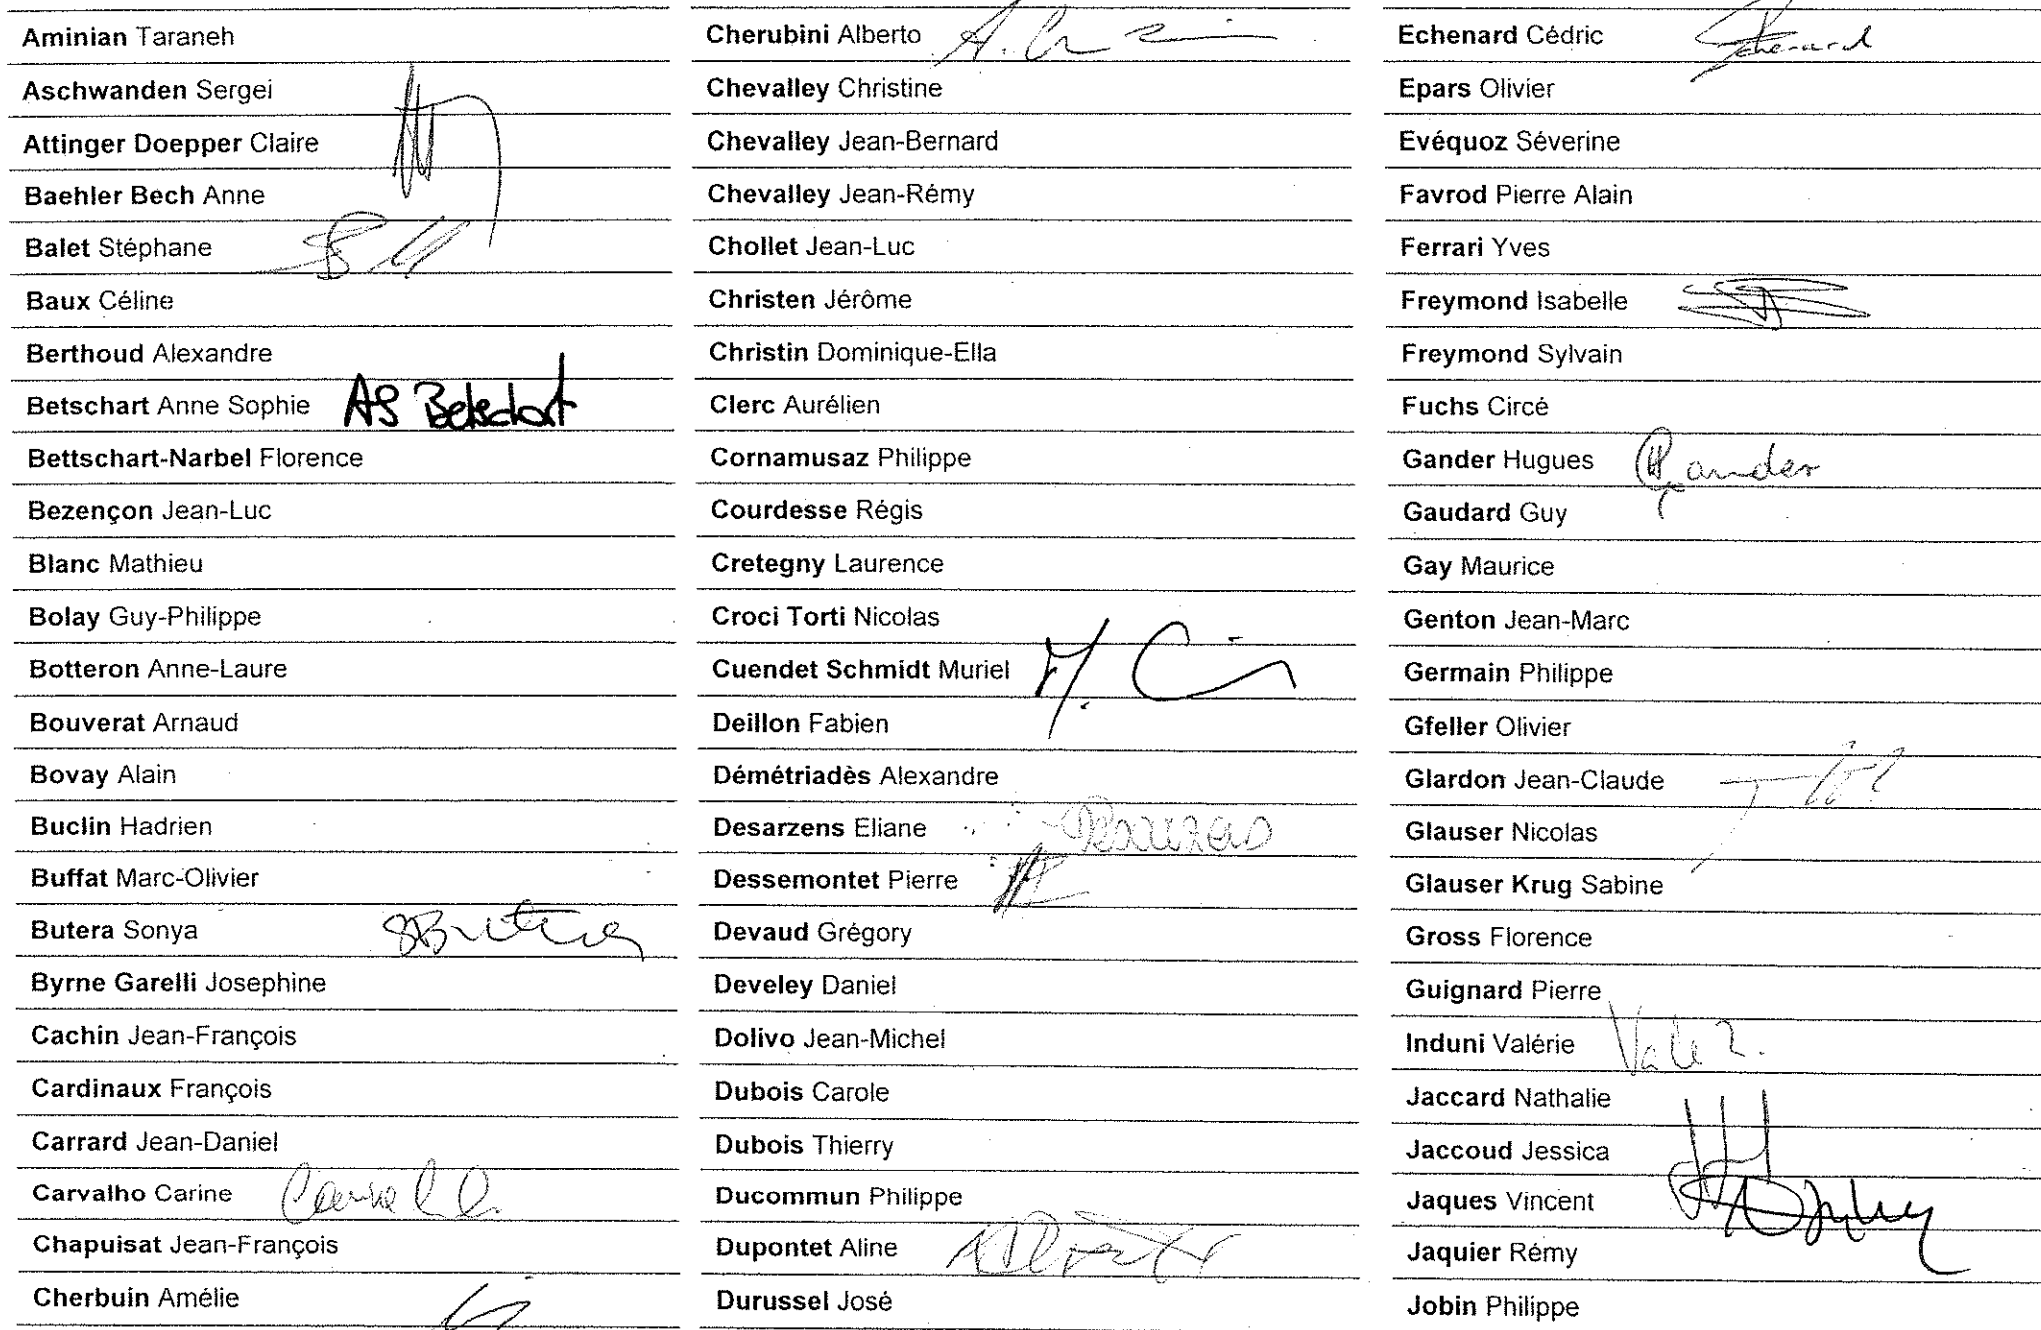 Aminian Taraneh
Aschwanden Sergei
Attinger Doepper Claire
Baehler Bech Anne
Balet Stéphane
Baux Céline
Berthoud Alexandre
Betschart Anne Sophie AS Betschart
Bettschart-Narbel Florence
Bezençon Jean-Luc
Blanc Mathieu
Bolay Guy-Philippe
Botteron Anne-Laure
Bouverat Arnaud
Bovay Alain
Buclin Hadrien
Buffat Marc-Olivier
Butera Sonya SButera
Byrne Garelli Josephine
Cachin Jean-François
Cardinaux François
Carrard Jean-Daniel
Carvalho Carine
Chapuisat Jean-François
Cherbuin Amélie
Cherubini Alberto
Chevalley Christine
Chevalley Jean-Bernard
Chevalley Jean-Rémy
Chollet Jean-Luc
Christen Jérôme
Christin Dominique-Ella
Clerc Aurélien
Cornamusaz Philippe
Courdesse Régis
Cretegny Laurence
Croci Torti Nicolas
Cuendet Schmidt Muriel
Deillon Fabien
Démétriadès Alexandre
Desarzens Eliane Desarzens
Dessemontet Pierre
Devaud Grégory
Develey Daniel
Dolivo Jean-Michel
Dubois Carole
Dubois Thierry
Ducommun Philippe
Dupontet Aline
Durussel José
Echenard Cédric Echenard
Epars Olivier
Evéquoz Séverine
Favrod Pierre Alain
Ferrari Yves
Freymond Isabelle
Freymond Sylvain
Fuchs Circé
Gander Hugues HGander
Gaudard Guy
Gay Maurice
Genton Jean-Marc
Germain Philippe
Gfeller Olivier
Glardon Jean-Claude
Glauser Nicolas
Glauser Krug Sabine
Gross Florence
Guignard Pierre
Induni Valérie
Jaccard Nathalie
Jaccoud Jessica
Jaques Vincent
Jaquier Rémy
Jobin Philippe